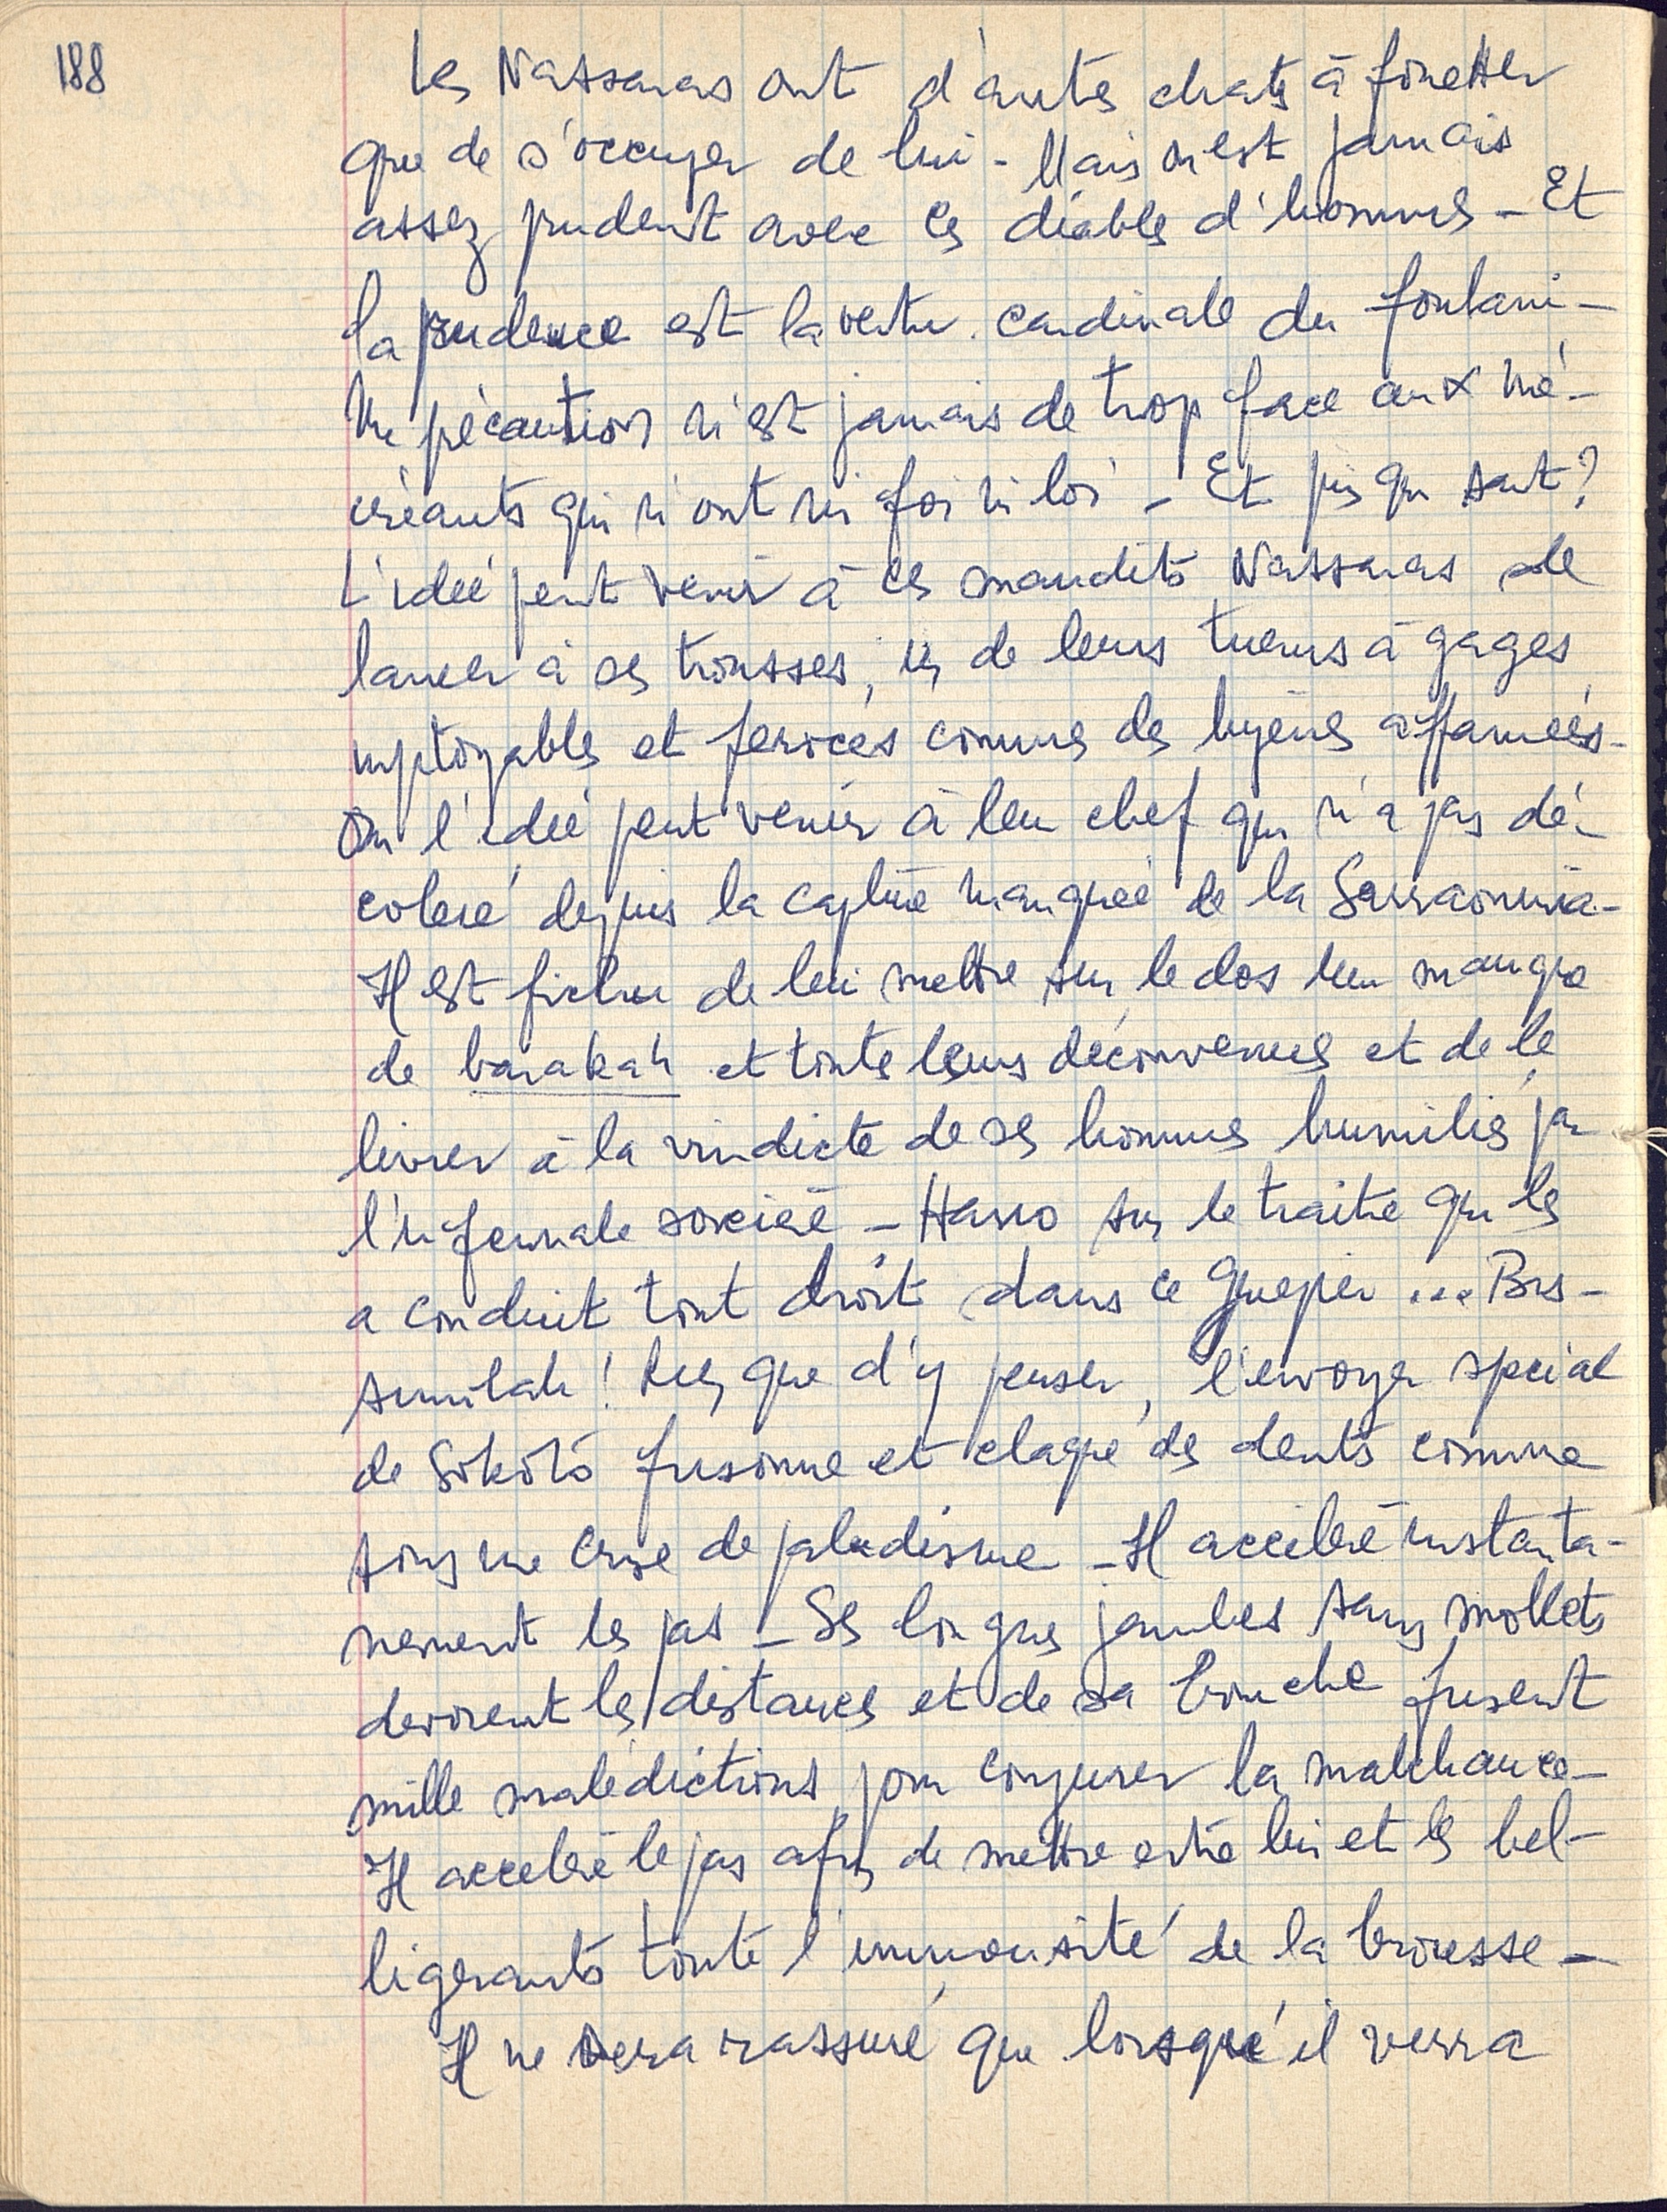 188
Les Nassaras ont d'autres chats à fouetter
que de s'occuper de lui - Mais on est jamais
assez prudent avec ces diables d'hommes - Et
la prudence est la vertu cardinale du foulani -
Une précaution n'est jamais de trop face aux mé-
créants qui n'ont ni foi ni loi - Et puis qui sait ?
L'idée peut venir à ces maudits Nassaras de
lancer à ses trousses, un de leurs tueurs à gages
impitoyables et feroces comme des hyènes affamées -
Ou l'idée peut venir à leur chef qui n'a pas dé-
coleré depuis la capture manquée de la Sarraounia -
Il est fichu de lui mettre sur le dos leur manque
de barakah et toutes leurs déconvenues et de le
livrer à la vindicte de ses hommes humiliés par
l'infernale sorcière - Haro sur le traitre qui les
a conduit tout droit dans ce guepier ... Bis-
similah ! Rien que d'y penser, l'envoyer special
de Sokoto frisonne et claque des dents comme
sous une crise de paludisme - Il accélère instanta-
nement le pas - Ses longues jambes sans mollets
devorent les distances et de sa bouche fusent
mille malédictions pour conjurer la malchance -
Il accelère le pas afin de mettre entre lui et les bel-
ligerants toute l'immensité de la brousse -
Il ne sera rassuré que lorsque il verra